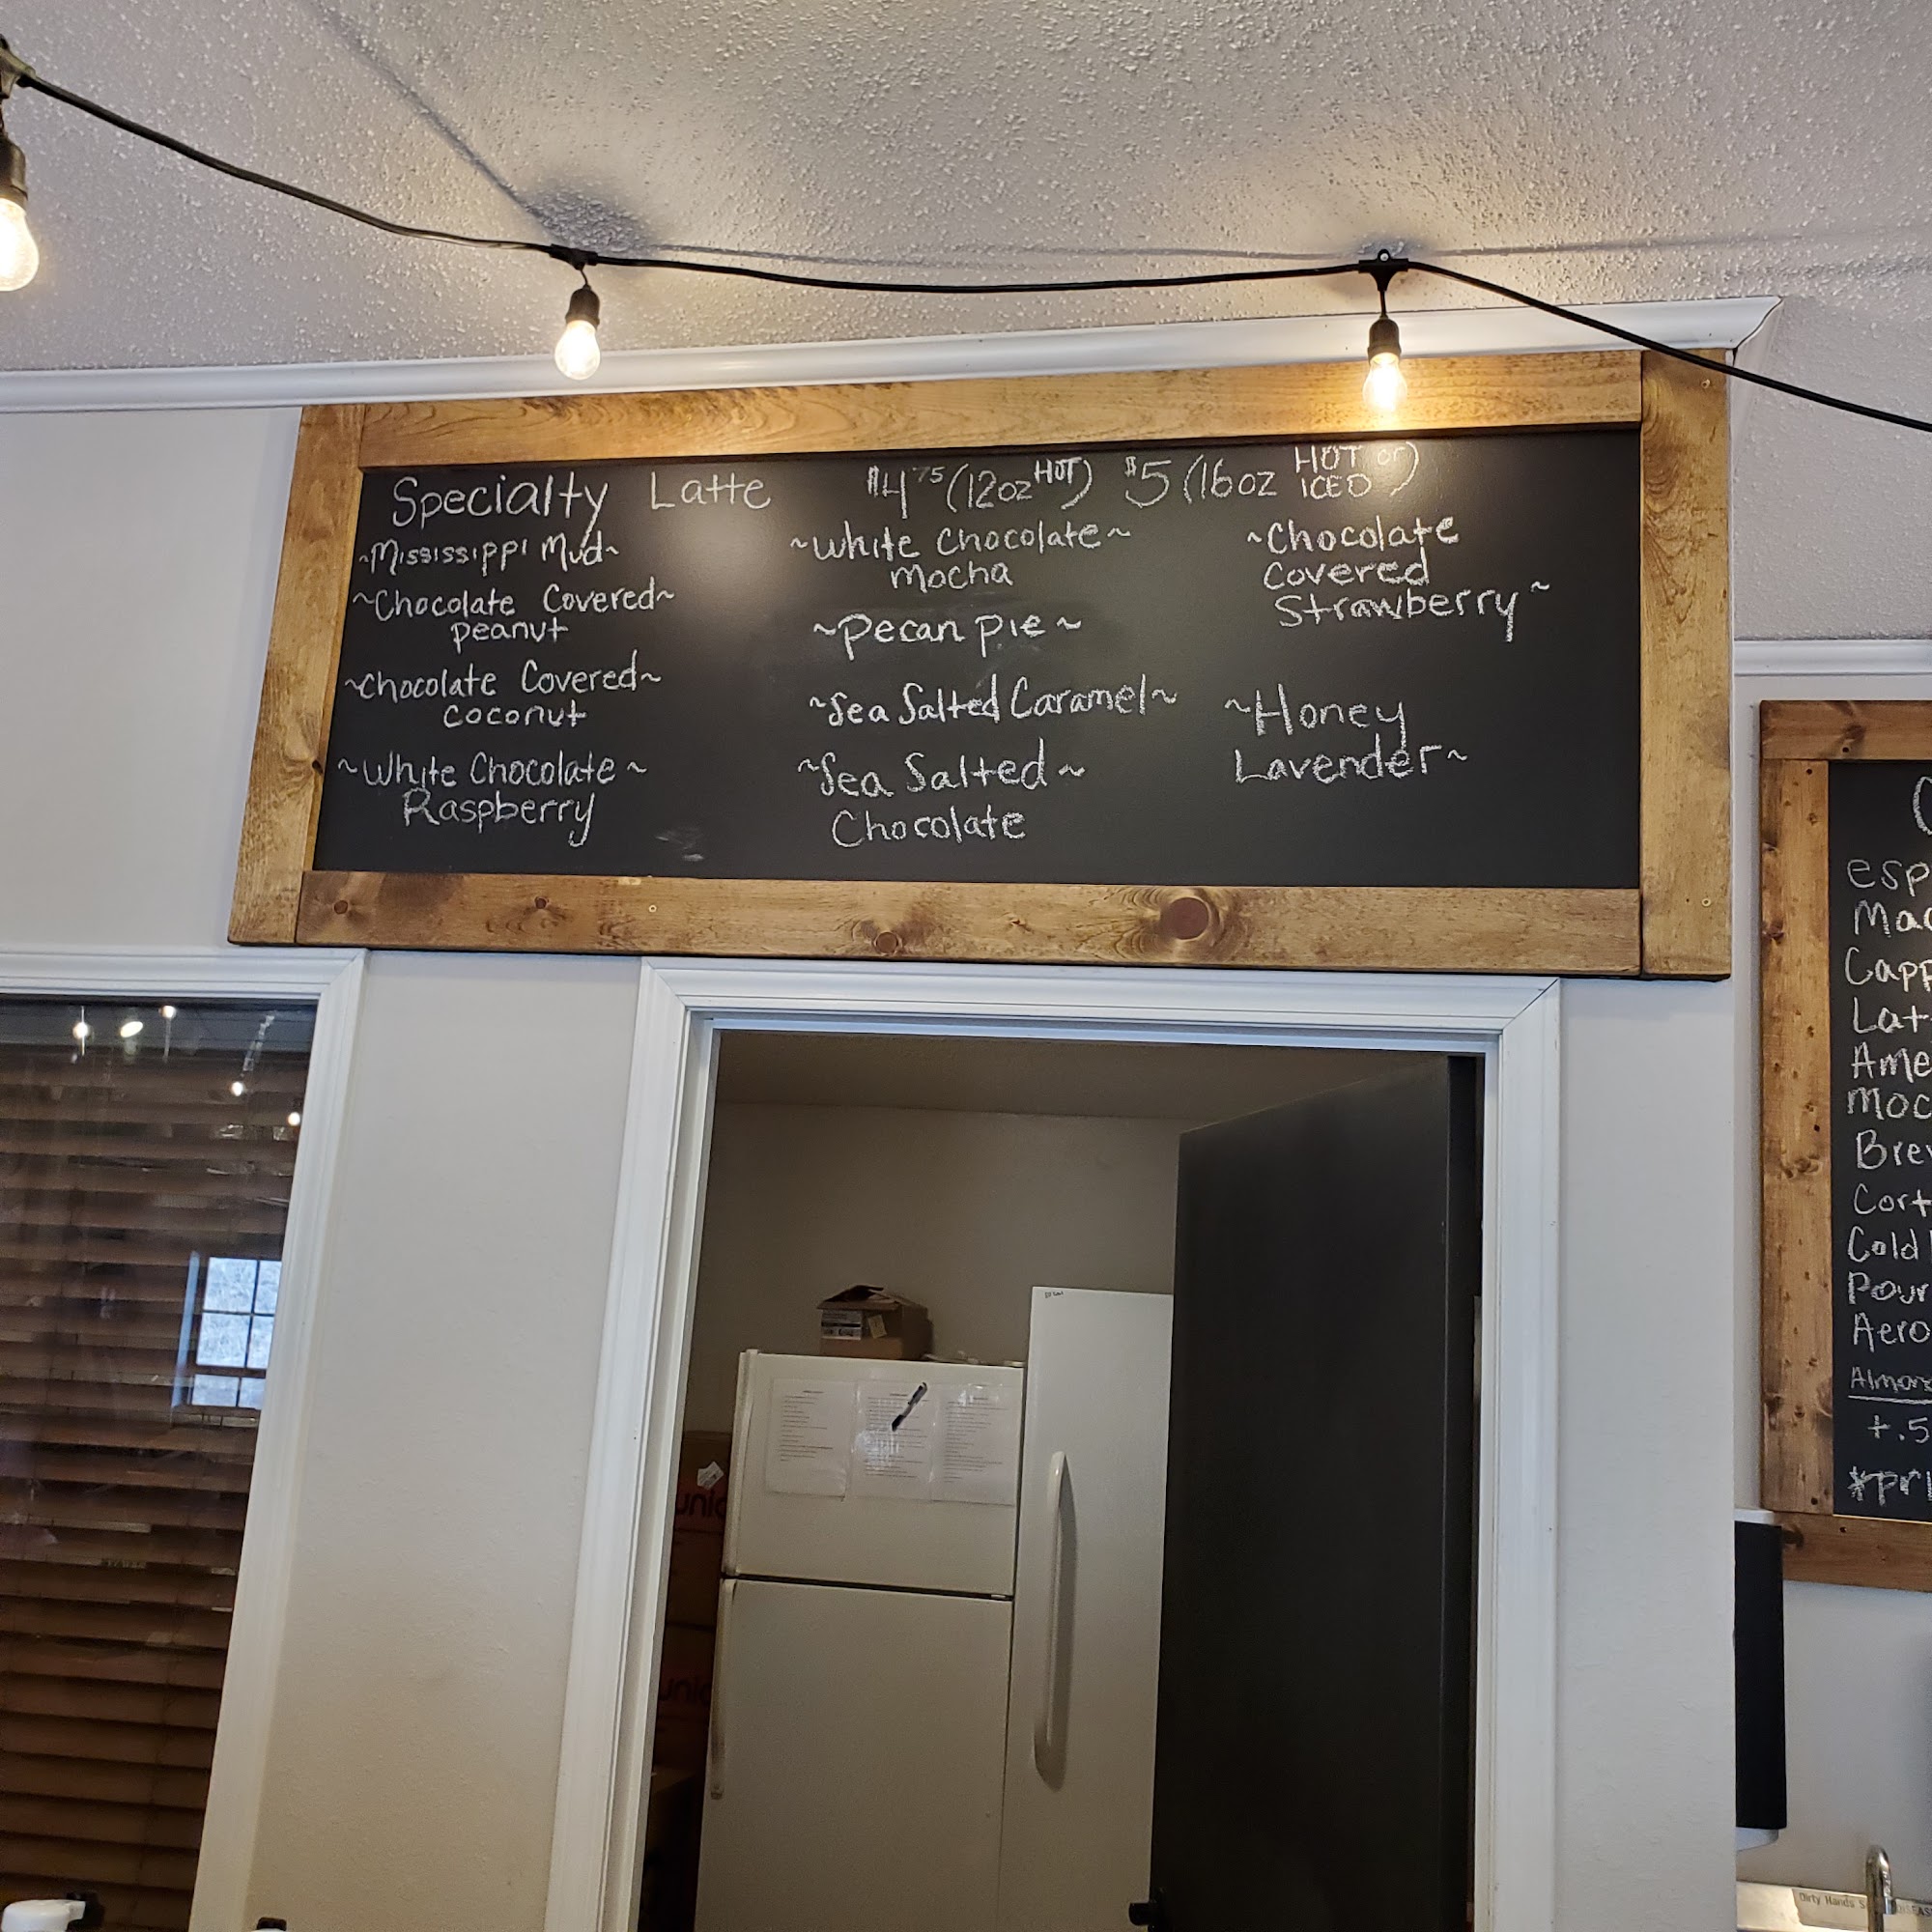 Specialty Latte $4.75 (12oz HOT) $5 (16oz HOT or ICED)
~Mississippi Mud~
~Chocolate Covered~
peanut
~Chocolate Covered~
coconut
~White Chocolate~
Raspberry
~White Chocolate~
mocha
~Pecan pie~
~Sea Salted Caramel~
~Sea Salted~
Chocolate
~Chocolate
Covered
Strawberry~
~Honey
Lavender~
esp
Mac
Capp
Lat
Ame
Moc
Brev
Cort
Cold
Pour
Aero
Almon
+.5
*pri
Dirty Hands